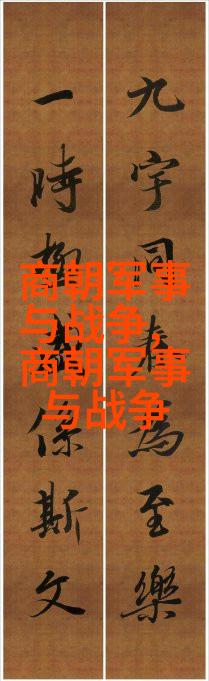 九宇同春為至樂
一時係斯文
商朝军事
与战争，
商朝军事
与战争